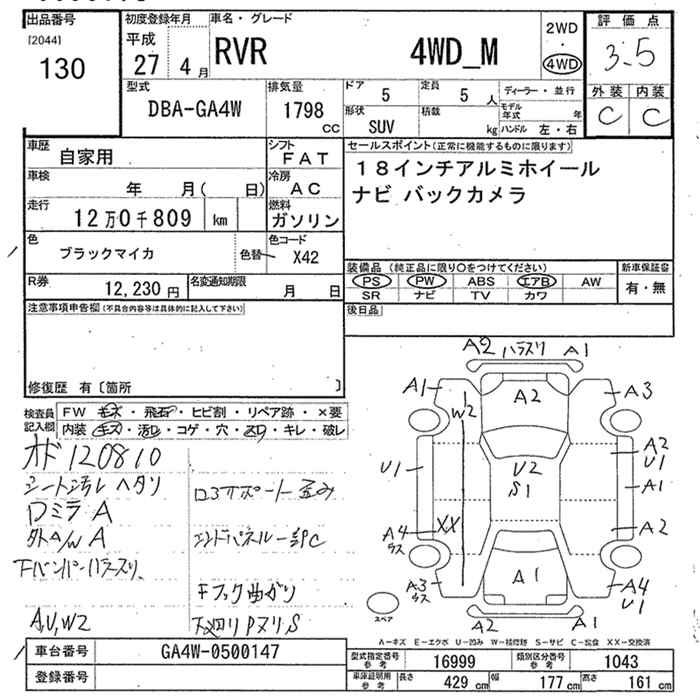 出品番号
[2044]
130
初度登録年月
平成
27 4 月
車名・グレード
RVR 4WD_M
2WD
・
4WD
評価点
3.5
外装 内装
C C
型式
DBA-GA4W
排気量
1798
CC
ドア
5
定員
5 人
ディーラー・並行
形状
SUV
積載
kg
モデル年式 年
ハンドル 左・右
車歴
自家用
シフト
FAT
車検
年 月( 日)
冷房
AC
走行
12万0千809 km
燃料
ガソリン
色
ブラックマイカ
色替
色コード
X42
R券
12,230 円
名変通知期限
月 日
セールスポイント(正常に機能するものに限ります)
18インチアルミホイール
ナビ バックカメラ
装備品 (純正品に限り○をつけてください)
PS PW ABS エアB AW
SR ナビ TV カワ
新車保証書
有・無
後日品
注意事項申告欄(不具合内容等は具体的に記入して下さい)
修復歴 有〔箇所 〕
検査員
記入欄
FW キズ・飛石・ヒビ割・リペア跡・×要
内装 キズ・汚レ・コゲ・穴・スリ・キレ・破レ
オド 120810
シート汚レ ヘタリ
ロミラ A
外のW A
下バンパーハラスリ
A,U,W2
ロアサポート歪み
エンドパネル一部C
Fフック曲がり
下廻りPヌリ,S
A2 ハラスリ A1
A1
W2
A2
A3
U1
U2
S1
A2
U1
A1
A4
ラス
XX
A2
A3
ラス
A1
A4
U1
スペア
A2
A1
A-キズ E-エクボ U-凹み W-補修跡 S-サビ C-腐食 XX-交換済
車台番号
GA4W-0500147
登録番号
型式指定番号
参考
16999
類別区分番号
参考
1043
車庫証明用
参考
長さ
429 cm
幅
177 cm
高さ
161 cm